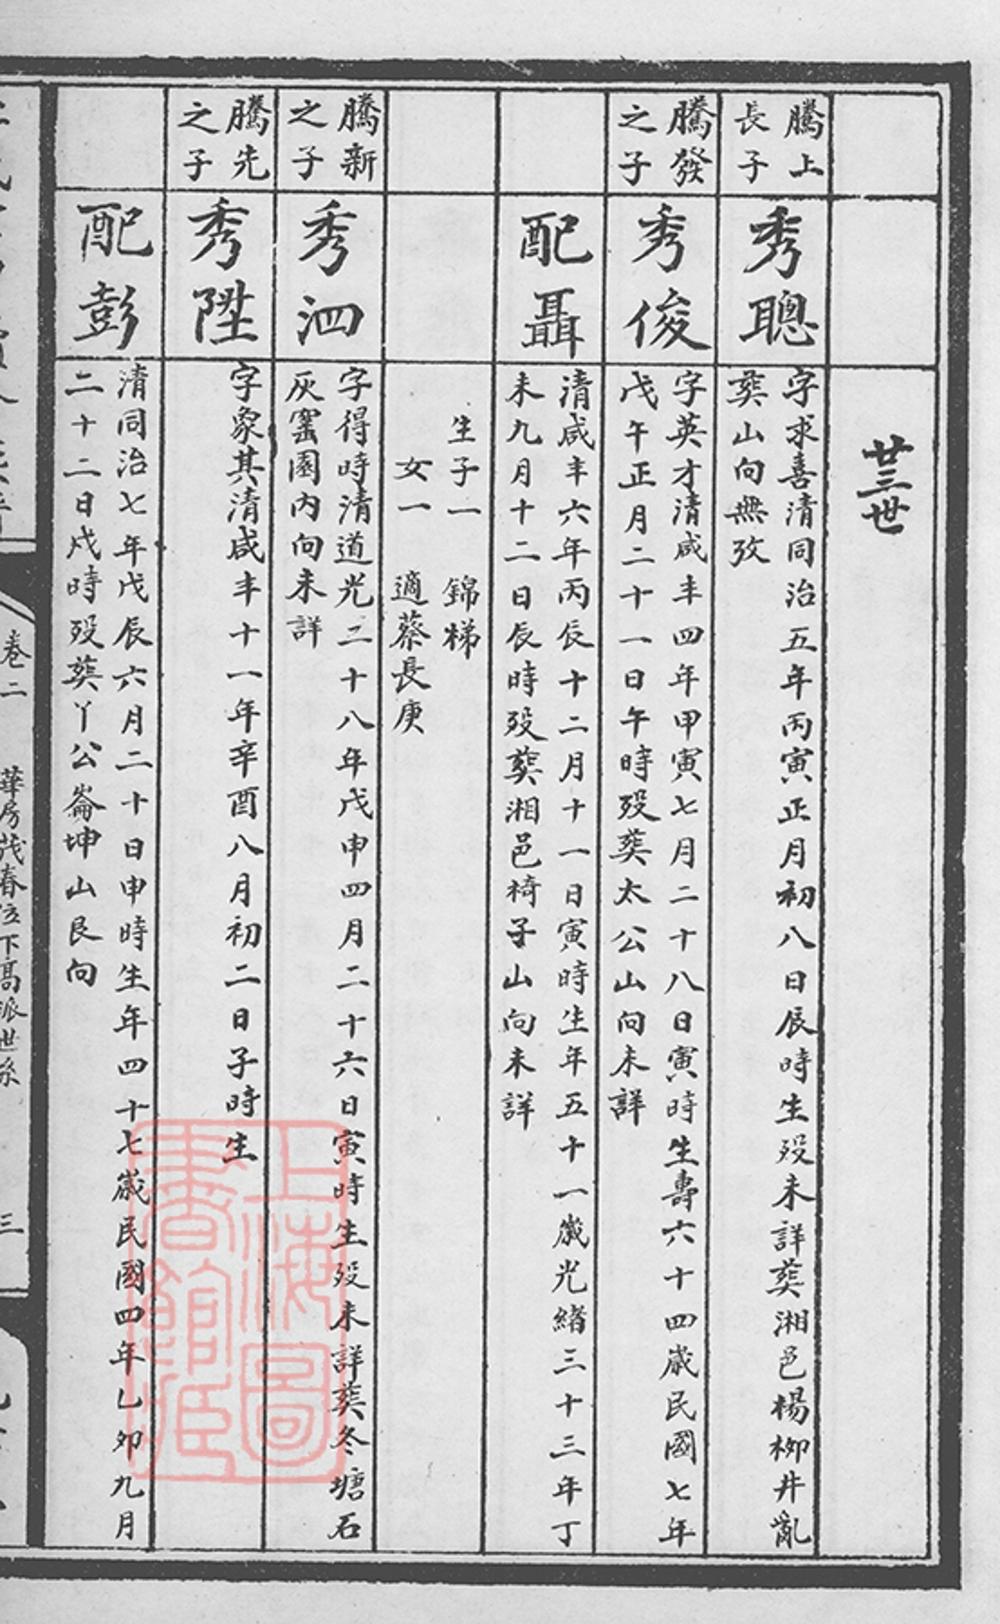 廿三世
騰上
長子
秀聰
字求喜清同治五年丙寅正月初八日辰時生歿未詳葬湘邑楊柳井亂
葬山向無攷
騰發
之子
秀俊
字英才清咸丰四年甲寅七月二十八日寅時生壽六十四歲民國七年
戊午正月二十一日午時歿葬太公山向未詳
配聶
清咸丰六年丙辰十二月十一日寅時生年五十一歲光緒三十三年丁
未九月十二日辰時歿葬湘邑椅子山向未詳
生子一 錦梯
女一 適蔡長庚
騰新
之子
秀泗
字得時清道光二十八年戊申四月二十六日寅時生歿未詳葬冬塘石
灰窰園內向未詳
騰先
之子
秀陞
字象其清咸丰十一年辛酉八月初二日子時生
配彭
清同治七年戊辰六月二十日申時生年四十七歲民國四年乙卯九月
二十二日戌時歿葬丫公崙坤山艮向
卷二
華房茂春位下高派世系
三
上海圖
書館藏